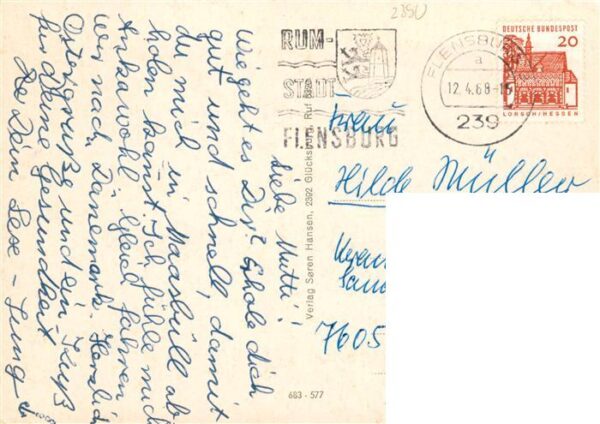 2390
RUM-
STADT
FLENSBURG
FLENSBURG
a
12.4.68-15
239
DEUTSCHE BUNDESPOST
20
LORSCH/HESSEN
Frau
Hilde Müller
7605
Verlag Søren Hansen, 2392 Glücksburg, Ruf
683 - 577
Liebe Mutti!
Wie geht es Dir? Erhole dich
gut und schnell, damit
du mich in Maasbüll ab
holen kannst. Ich fühle mich
hier wohl. Gleich fahren
wir nach Dänemark. Herzliche
Ostergrüße und ein Kuß
für deine Gesundheit